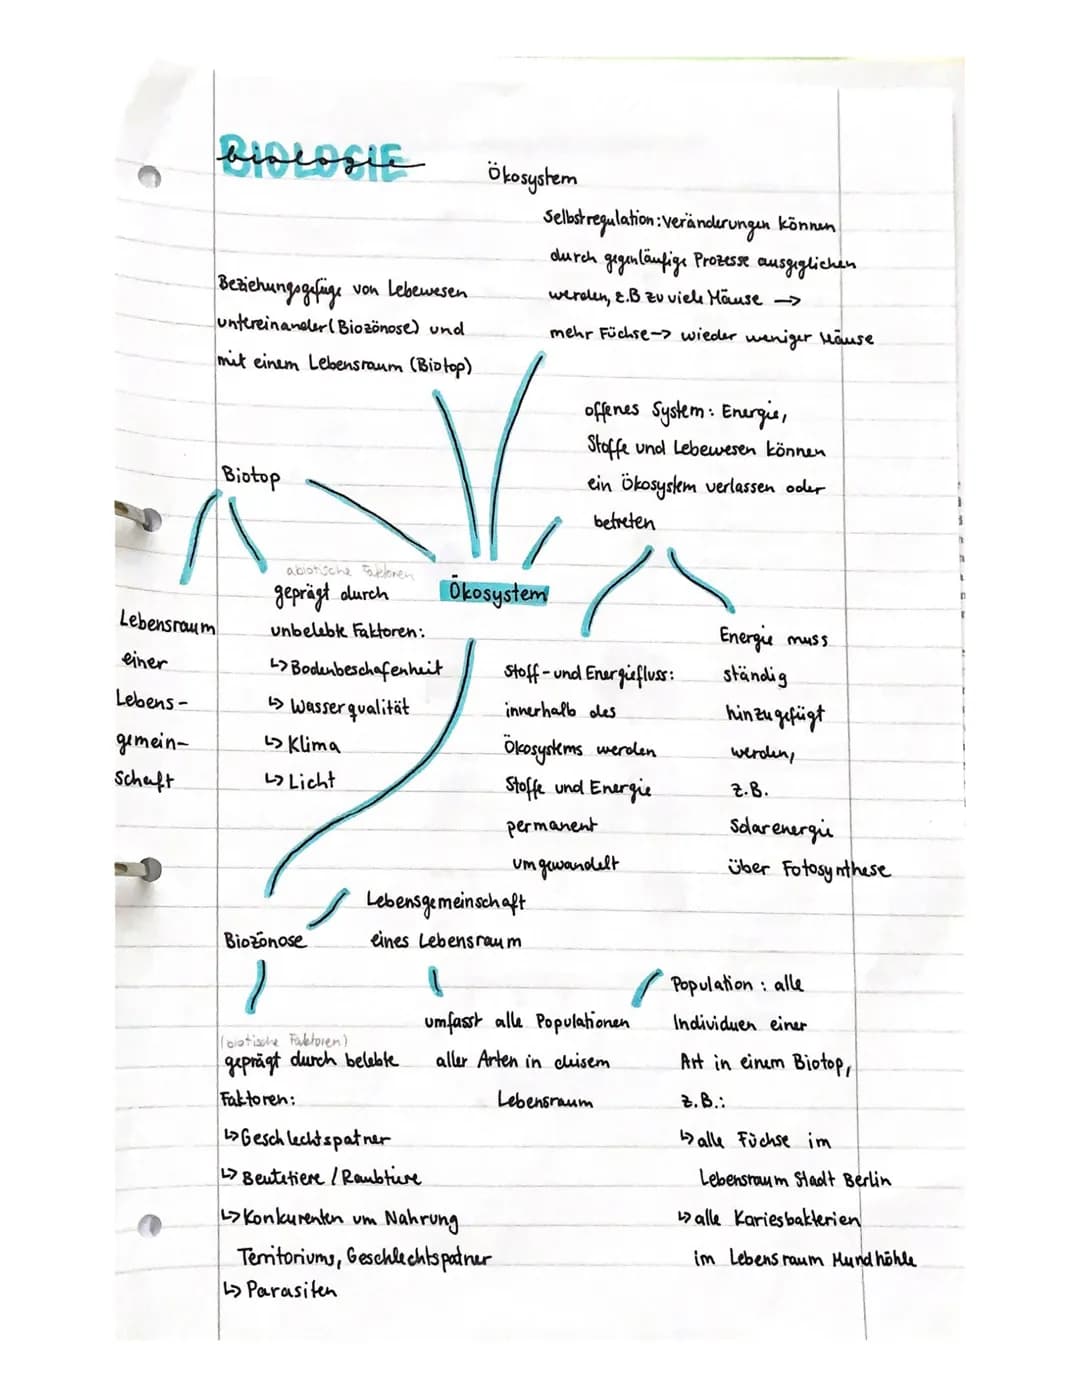 BIOLOGIE
biologie
Ökosystem
Selbstregulation: Veränderungen können
durch gegenläufige Prozesse ausgeglichen
werden, z.B zu viele Mäuse →
mehr Füchse → wieder weniger Mäuse
Beziehungsgefüge von Lebewesen
untereinander (Biozönose) und
mit einem Lebensraum (Biotop)
offenes System: Energie,
Stoffe und Lebewesen können
ein Ökosystem verlassen oder
betreten
Biotop
Ökosystem
Lebensraum
einer
Lebens-
gemein-
schaft
abiotische Faktoren
geprägt durch
unbelebte Faktoren:
↳ Bodenbeschafenheit
↳ Wasserqualität
↳ Klima
↳ Licht
Stoff- und Energiefluss:
innerhalb des
Ökosystems werden
Stoffe und Energie
permanent
umgewandelt
Energie muss
ständig
hinzugefügt
werden,
z.B.
Solarenergie
über Fotosynthese
Biozönose
Lebensgemeinschaft
eines Lebensraum
(biotische Faktoren)
geprägt durch belebte
Faktoren:
↳ Geschlechtspatner
↳ Beutetiere / Raubtiere
↳ Konkurenten um Nahrung
Territoriums, Geschlechtspatner
↳ Parasiten
umfasst alle Populationen
aller Arten in diesem
Lebensraum
Population: alle
Individuen einer
Art in einem Biotop,
z.B.:
↳ alle Füchse im
Lebensraum Stadt Berlin
↳ alle Kariesbakterien
im Lebensraum Mundhöhle